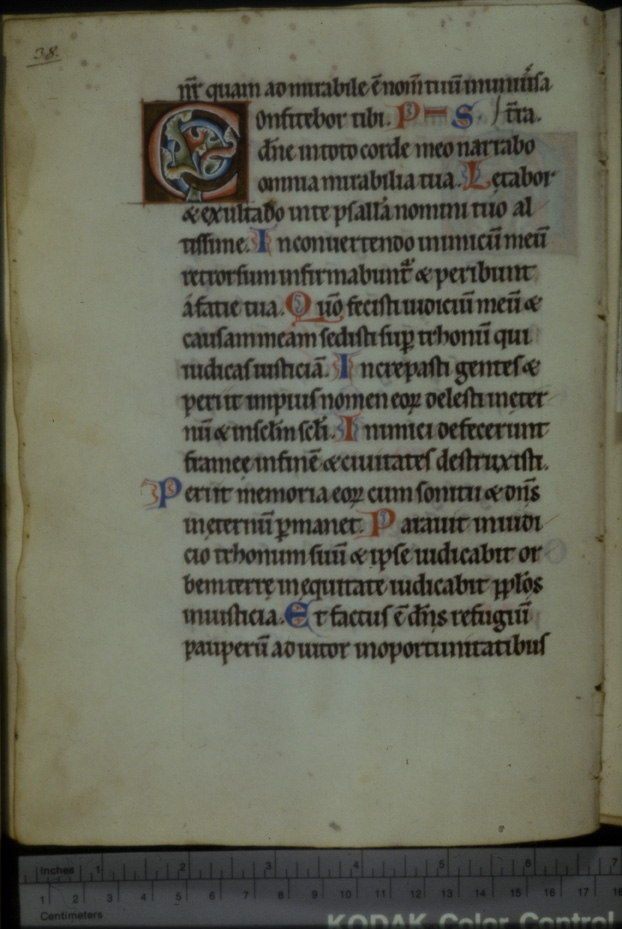 38.
n̄r̄ quam admirabile ē nom̄ tuū inuniūsa
Confitebor tibi. P S t̄ra.
dn̄e intoto corde meo narrabo
omnia mirabilia tua. Letabor
& exultabo inte psallā nomini tuo al
tissime. Inconuertendo inimicū meū
retrorsum infirmabunt̄ & peribunt
afacie tua. Qūo fecisti iudiciū meū &
causam meam sedisti sup̄ trhonū qui
iudicas iusticiā. Increpasti gentes &
periit impius nomen eoꝝ delesti ineter
nū & insc̄lm sc̄li. Inimici defecerunt
framee infinē & ciuitates destruxisti.
Periit memoria eoꝝ cum sonitu & dn̄s
ineternū ꝑmanet. Parauit iniudi
cio trhonum suū & ipse iudicabit or
bem terrę inequitate iudicabit pp̄los
iniusticia. Et factus ē dn̄s refugiū
pauperū adiutor inoportunitatibus
Inches 1 2 3 4 5 6 7
1 2 3 4 5 6 7 8 9 10 11 12 13 14 15 16 17 18
Centimeters
KODAK Color Control